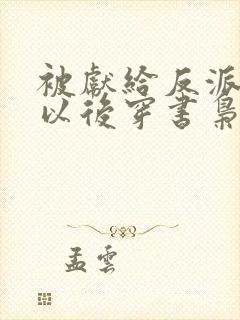 被獻給反派
以後穿書梟
孟雲